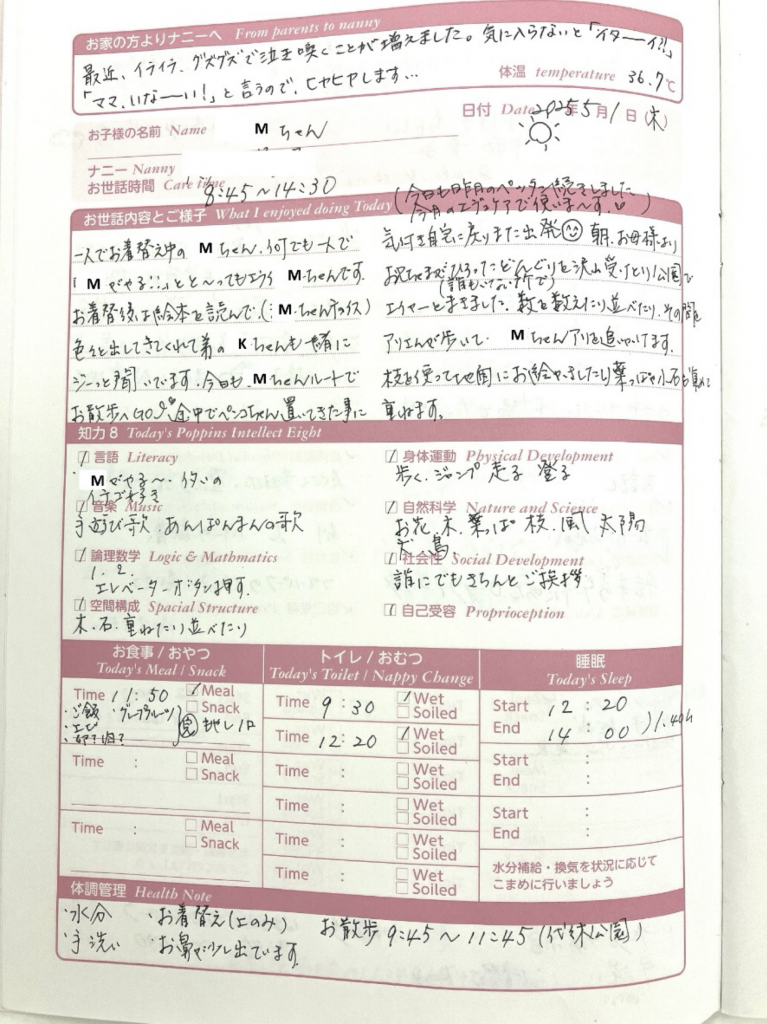 お家の方よりナニーへ From parents to nanny
最近、イライラ、グズグズで泣き喚くことが増えました。気に入らないと「イターーイ!!」
「ママ、いなーい!」と言うので、ヒヤヒヤします…
体温 temperature 36.7℃
日付 Date 2025年5月1日(木)
お子様の名前 Name Mちゃん
ナニー Nanny
お世話時間 Care time 8:45〜14:30
(今日も昨月のペッタン続きをしました
今月のエデュケアで使いま〜す。)
お世話内容とご様子 What I enjoyed doing Today
一人でお着替え中の Mちゃん、何でも一人で
「Mがやる!!」とと〜ってもえらう Mちゃんです。
お着替後は絵本を読んで、(Mちゃんチョイス)
色々と出してきてくれて弟の Kちゃんも一緒に
ジーッと聞いています。今日も、Mちゃんルートで
お散歩へGO 途中でペンコちゃん置いてきた事に
気付き自宅に戻りまた出発 朝、お母様より
お兄ちゃまがひろったどんぐりを沢山受けとり公園で
(誰もいない所で)
エイヤーとまきました。数を数えたり並べたり、その間を
アリさんが歩いて、Mちゃんアリを追いかけます。
枝を使って地面にお絵かきしたり葉っぱや小石を集めて
重ねます。
知力8 Today's Poppins Intellect Eight
言語 Literacy
Mがやる〜・イタいの
イチゴ好き
音楽 Music
手遊び歌 あんぱんまんの歌
論理数学 Logic & Mathmatics
1. 2.
エレベーターボタン押す。
空間構成 Spacial Structure
木、石、重ねたり並べたり
身体運動 Physical Development
歩く、ジャンプ 走る 登る
自然科学 Nature and Science
お花、木、葉っぱ 枝、風 太陽
犬 鳥
社会性 Social Development
誰にでもきちんとご挨拶
自己受容 Proprioception
お食事 / おやつ
Today's Meal / Snack
Time 11:50 Meal
Snack
・ご飯 ・グレープフルーツ
・エビ
Time : Meal
Snack
Time : Meal
Snack
トイレ / おむつ
Today's Toilet / Nappy Change
Time 9:30 Wet
Soiled
Time 12:20 Wet
Soiled
Time : Wet
Soiled
Time : Wet
Soiled
Time : Wet
Soiled
Time : Wet
Soiled
睡眠
Today's Sleep
Start 12:20
End 14:00 )1.40h
Start :
End :
Start :
End :
水分補給・換気を状況に応じて
こまめに行いましょう
体調管理 Health Note
・水分 ・お着替え(上のみ) お散歩 9:45〜11:45(代々木公園)
・手洗い ・お鼻が少し出でいます